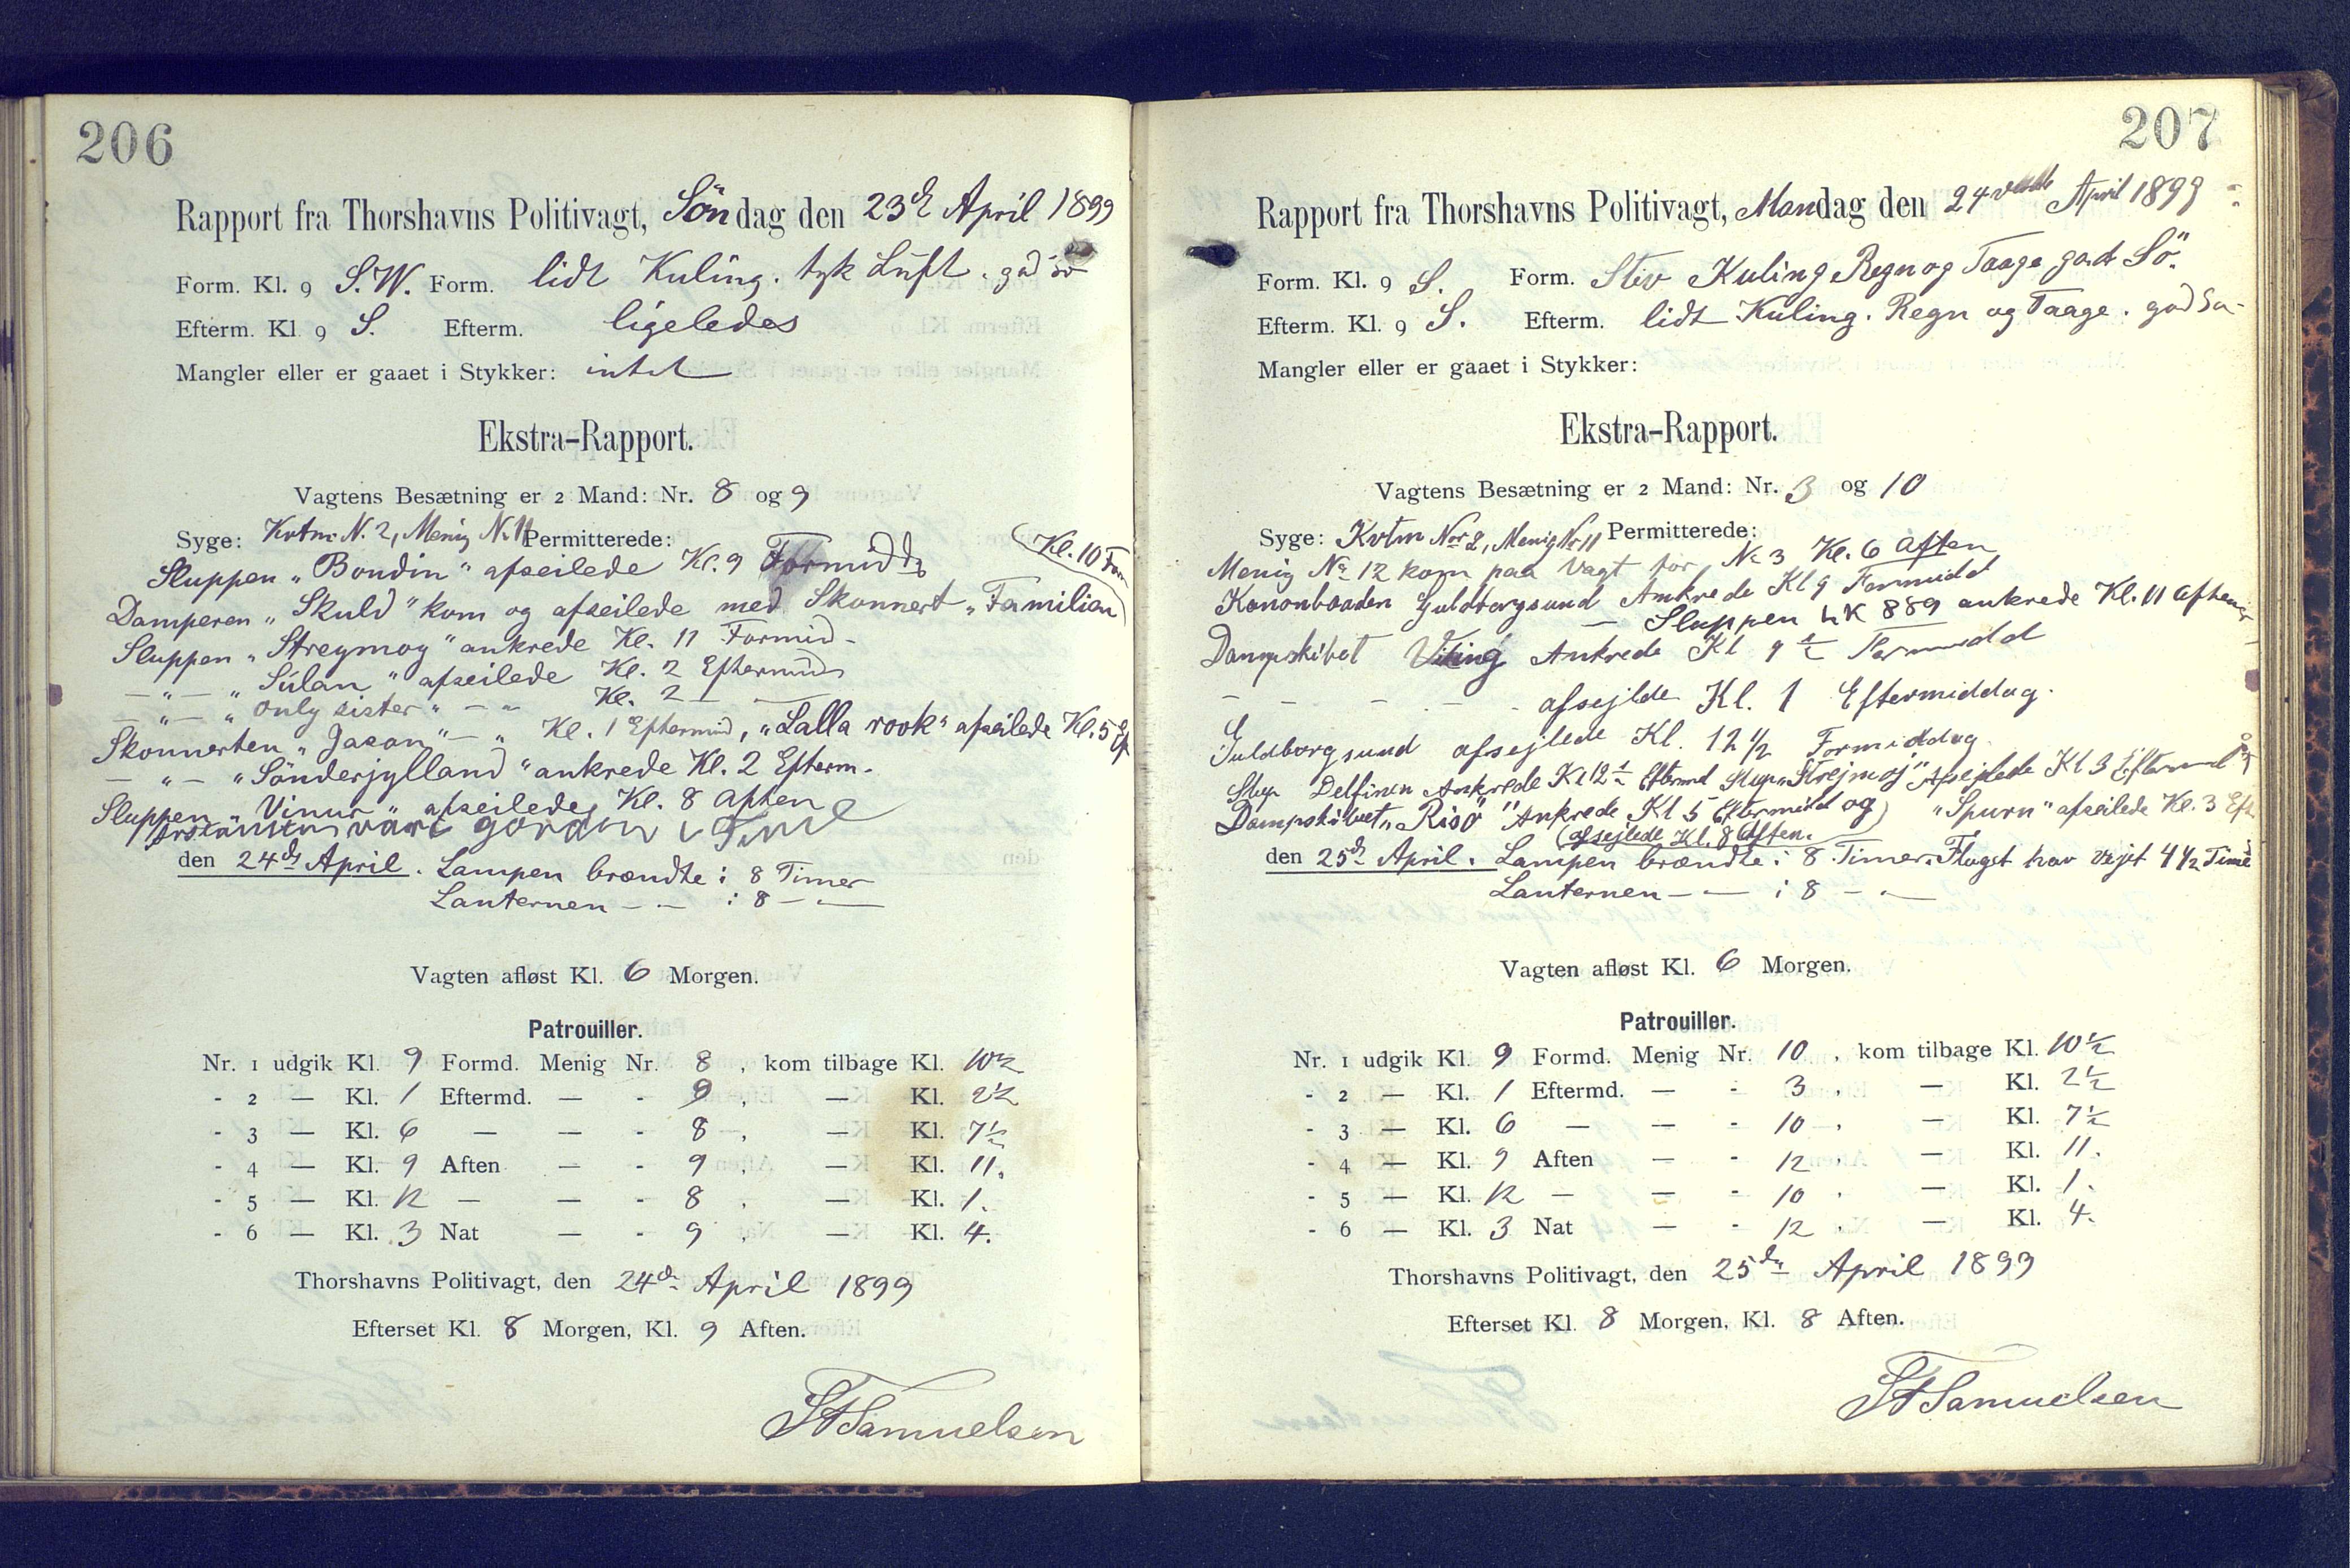 206
Rapport fra Thorshavns Politivagt, Söndag den 23de April 1899
Form. Kl. 9 S.W. Form. lidt Kuling. tyk Luft. god Sö
Efterm. Kl. 9 S. Efterm. ligeledes
Mangler eller er gaaet i Stykker: intet
Ekstra-Rapport.
Vagtens Besætning er 2 Mand: Nr. 8 og 9
Syge: Kvtm: N. 2, Menig N. 11 Permitterede:
Sluppen „Bondin" afseilede Kl. 9 Formidd
Kl. 10 Form
Damperen „Skuld" kom og afseilede med Skonnert „Familien
Sluppen „Streymoy" ankrede Kl. 11 Formid-
— " — „Súlan" afseilede Kl. 2 Eftermid
— " — „Only sister" — " Kl. 2 — —
Skonnerten „Jason" — " Kl. 1 Eftermid, „Lalla rook" afseilede Kl. 5 Ef
— " — „Sönderjylland" ankrede Kl. 2 Efterm.
Sluppen „Vinur" afseilede Kl. 8 Aften
den 24de April. Lampen brændte i 8 Timer
Lanternen — — i 8 — —
Vagten afløst Kl. 6 Morgen.
Patrouiller.
Nr. 1 udgik Kl. 9 Formd. Menig Nr. 8, kom tilbage Kl. 10½
- 2 — Kl. 1 Eftermd. — - 9, — Kl. 2½
- 3 — Kl. 6 — — - 8, — Kl. 7½
- 4 — Kl. 9 Aften — - 9, — Kl. 11.
- 5 — Kl. 12 — — - 8, — Kl. 1.
- 6 — Kl. 3 Nat — - 9, — Kl. 4.
Thorshavns Politivagt, den 24de April 1899
Efterset Kl. 8 Morgen, Kl. 9 Aften.
Samuelsen
207
Rapport fra Thorshavns Politivagt, Mandag den 24 April 1899
Form. Kl. 9 S. Form. Stiv Kuling Regn og Taage god Sö.
Efterm. Kl. 9 S. Efterm. lidt Kuling. Regn og Taage. god Sö-
Mangler eller er gaaet i Stykker:
Ekstra-Rapport.
Vagtens Besætning er 2 Mand: Nr. 3 og 10
Syge: Kvtm Nor 2, Menig Nr 11 Permitterede:
Menig No 12 kom paa Vagt for No 3 Kl. 6 Aften
Kanonbaaden Guldborgsund Ankrede Kl 9 Formidd
— Sluppen LK 889 ankrede Kl. 11 Aften
Dampskibet Viking Ankrede Kl 9½ Formidd
- - - - afsejlde Kl. 1 Eftermiddag.
Guldborgsund afsejlede Kl. 12½ Formiddag
Slup Delfinen Ankrede Kl 12½ Eftermd Slup „Strejmoj" Afsejlede Kl 3 Eftermd
Dampskibet „Risö" Ankrede Kl 5 Eftermidd og „Spurn" afseilede Kl. 3 Eft
(afsejlede Kl. 8 Aften.
den 25de April. Lampen brændte i 8 Timer. Flaget har vejet 4½ Time
Lanternen — — i 8 — —
Vagten afløst Kl. 6 Morgen.
Patrouiller.
Nr. 1 udgik Kl. 9 Formd. Menig Nr. 10, kom tilbage Kl. 10½
- 2 — Kl. 1 Eftermd. — - 3, — Kl. 2½
- 3 — Kl. 6 — — - 10, — Kl. 7½
- 4 — Kl. 9 Aften — - 12, — Kl. 11.
- 5 — Kl. 12 — — - 10, — Kl. 1.
- 6 — Kl. 3 Nat — - 12, — Kl. 4.
Thorshavns Politivagt, den 25de April 1899
Efterset Kl. 8 Morgen, Kl. 8 Aften.
Samuelsen